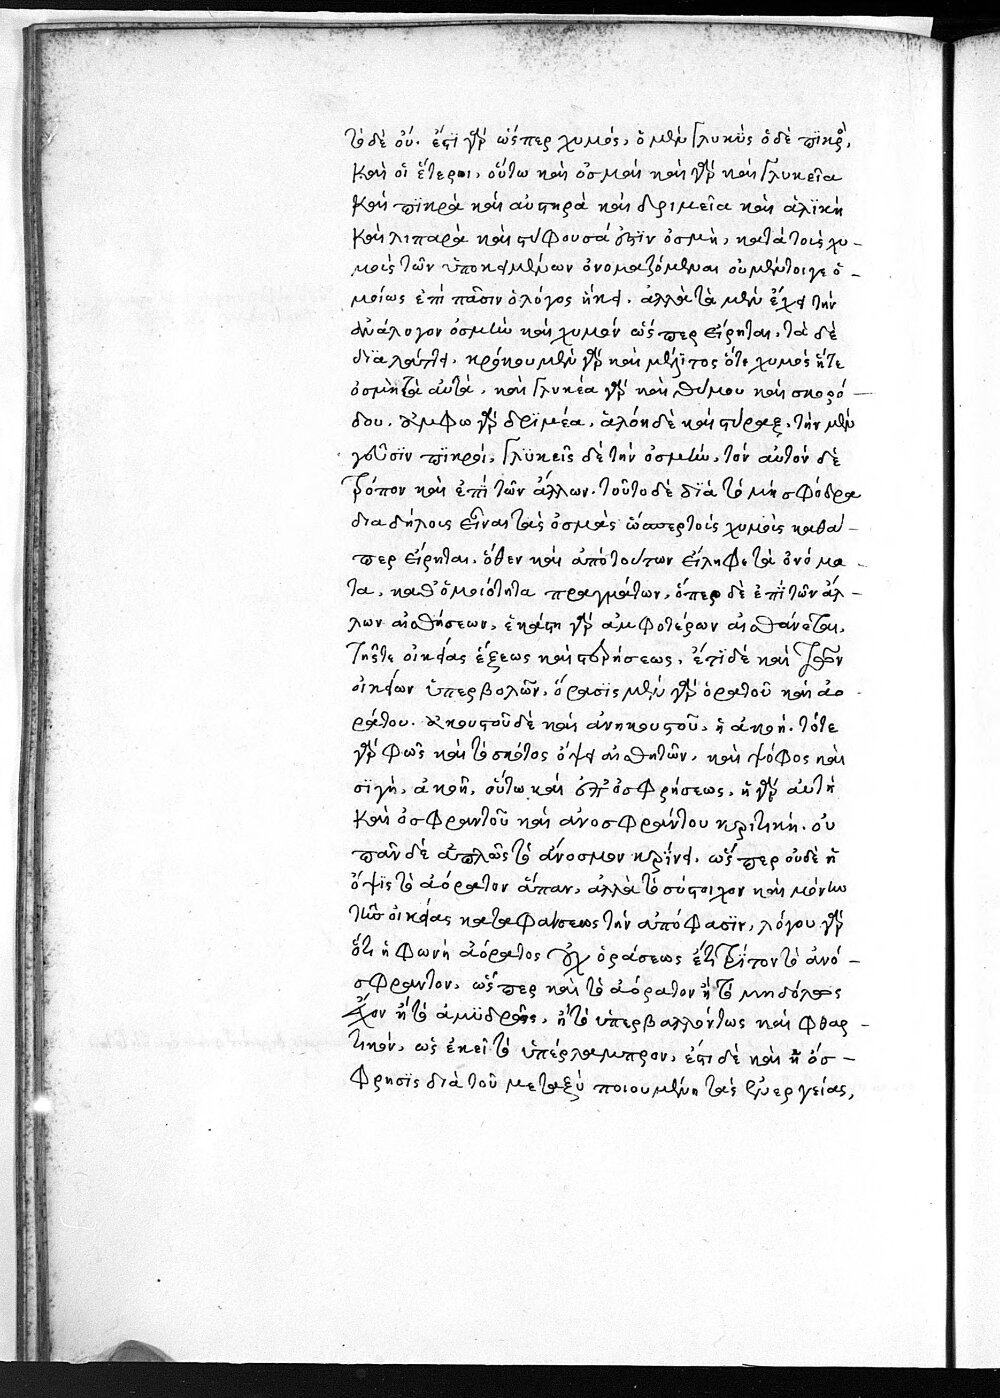 τὸ δὲ οὔ. ἔτι γὰρ ὥσπερ χυμός, ὁ μὲν γλυκὺς ὁ δὲ πικρὸς,
καὶ οἱ ἕτεροι, οὕτω καὶ ὀσμαὶ καὶ γὰρ καὶ γλυκεῖα
καὶ πικρὰ καὶ αὐστηρὰ καὶ δριμεῖα καὶ ἁλικὴ
καὶ λιπαρὰ καὶ στύφουσά ἐστιν ὀσμὴ, κατὰ τοῖς χυ-
μοῖς τῶν ὑποκειμένων ὀνομαζόμεναι οὐ μέντοιγε ὁ-
μοίως ἐπὶ πᾶσιν ὁ λόγος ἥκει. ἀλλὰ τὰ μὲν ἔχει τὴν
ἀνάλογον ὀσμὴν καὶ χυμὸν ὥσπερ εἴρηται, τὰ δὲ
διαλάττει. κρόκου μὲν γὰρ καὶ μέλιτος ὅτε χυμὸς ἥτε
ὀσμὴ τὰ αὐτὰ, καὶ γλυκέα γὰρ καὶ θύμου καὶ σκορό-
δου. ἄμφω γὰρ δριμέα, ἀλόη δὲ καὶ στύραξ, τὴν μὲν
γεῦσιν πικροί, γλυκεῖς δὲ τὴν ὀσμὴν, τὸν αὐτὸν δὲ
τρόπον καὶ ἐπὶ τῶν ἄλλων. τοῦτο δὲ διὰ τὸ μὴ σφόδρα
διαδήλοις εἶναι τὰς ὀσμὰς ὥσπερ τοῖς χυμοῖς καθά-
περ εἴρηται, ὅθεν καὶ ἀπὸ τούτων εἴληφε τὰ ὀνόμα-
τα, καθ' ὁμοιότητα πραγμάτων, ὅπερ δὲ ἐπὶ τῶν ἄλ-
λων αἰσθήσεων, ἑκάστη γὰρ ἀμφοτέρων αἰσθάνεται,
τῆς τε οἰκείας ἕξεως καὶ στερήσεως, ἔτι δὲ καὶ τῶν
οἰκείων ὑπερβολῶν, ὅρασις μὲν γὰρ ὁρατοῦ καὶ ἀο-
ράτου. ἀκουστοῦ δὲ καὶ ἀνηκουστοῦ, ἡ ἀκοή. τότε
γὰρ φῶς καὶ τὸ σκότος ὄψει αἰσθητῶν, καὶ ψόφος καὶ
σιγὴ, ἀκοῇ, οὕτω καὶ ἐπὶ ὀσφρήσεως, ἡ γὰρ αὐτὴ
καὶ ὀσφραντοῦ καὶ ἀνοσφράντου κριτική. οὐ
πᾶν δὲ ἁπλῶς τὸ ἄνοσμον κρίνει. ὥσπερ οὐδὲ ἡ
ὄψις τὸ ἀόρατον ἅπαν, ἀλλὰ τὸ σύστοιχον καὶ μόνην
τῆς οἰκείας καταφάσεως τὴν ἀπόφασιν, λόγου γὰρ
ὅτι ἡ φωνὴ ἀόρατος οὐχ ὁράσεως ἔτι τρίτον τὸ ἀνό-
σφραντον, ὥσπερ καὶ τὸ ἀόρατον ἢ τὸ μηδόλως
ἔχον ἢ τὸ ἀμυδρῶς, ἢ τὸ ὑπερβαλλόντως καὶ φθαρ-
τικόν, ὡς ἐκεῖ τὸ ὑπέρλαμπρον, ἔτι δὲ καὶ ἡ ὄσ-
φρησις διὰ τοῦ μεταξὺ ποιουμένη τὰς ἐνεργείας,